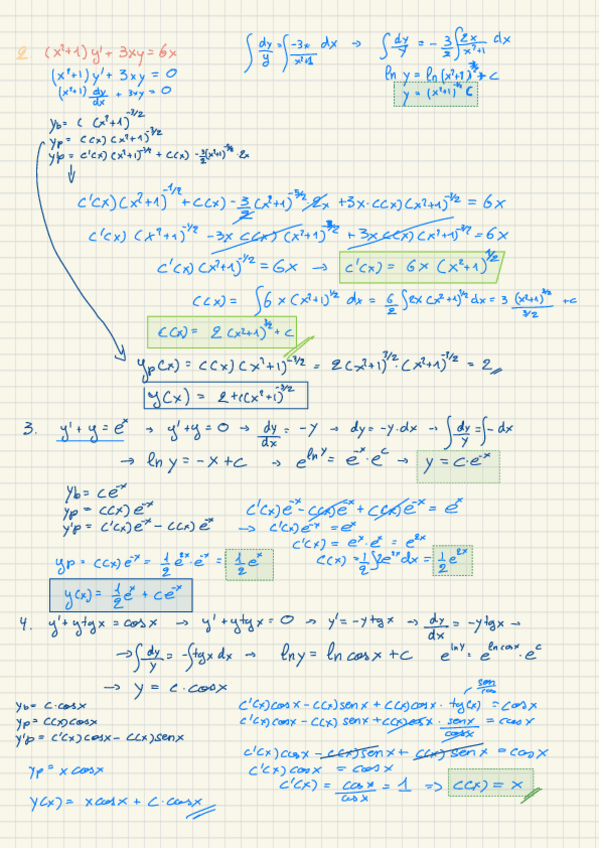 2 (x²+1) y' + 3xy = 6x
(x²+1) y' + 3xy = 0
(x²+1) dy/dx + 3xy = 0
∫ dy/y = ∫ -3x/x²+1 dx → ∫ dy/y = - 3/2 ∫ 2x/x²+1 dx
ln y = ln (x²+1)^-3/2 + c
y = (x²+1)^-3/2 C
yh = C (x²+1)^-3/2
yp = C(x) (x²+1)^-3/2
y'p = C'(x) (x²+1)^-3/2 + C(x) · -3/2 (x²+1)^-5/2 · 2x
C'(x) (x²+1)^-1/2 + C(x) - 3/2 (x²+1)^-5/2 · 2x + 3x · C(x) (x²+1)^-1/2 = 6x
C'(x) (x²+1)^-1/2 - 3x C(x) (x²+1)^-3/2 + 3x C(x) (x²+1)^-3/2 = 6x
C'(x) (x²+1)^-1/2 = 6x → C'(x) = 6x (x²+1)^1/2
C(x) = ∫ 6x (x²+1)^1/2 dx = 6/2 ∫ 2x (x²+1)^1/2 dx = 3 (x²+1)^3/2 / 3/2 + c
C(x) = 2 (x²+1)^3/2 + c
yp(x) = C(x) (x²+1)^-3/2 = 2(x²+1)^3/2 · (x²+1)^-3/2 = 2
y(x) = 2 + c(x²+1)^-3/2
3. y' + y = e^x → y' + y = 0 → dy/dx = -y → dy = -y · dx → ∫ dy/y = ∫ - dx
→ ln y = -x + c → e^ln y = e^-x · e^c → y = c · e^-x
yh = ce^-x
yp = C(x) e^-x
y'p = C'(x) e^-x - C(x) e^-x
C'(x) e^-x - C(x) e^-x + C(x) e^-x = e^x
→ C'(x) e^-x = e^x
C'(x) = e^x · e^x = e^2x
yp = C(x) e^-x = 1/2 e^2x · e^-x = 1/2 e^x
C(x) = 1/2 ∫ 2e^2x dx = 1/2 e^2x
y(x) = 1/2 e^x + ce^-x
4. y' + y tg x = cos x → y' + y tg x = 0 → y' = -y tg x → dy/dx = -y tg x →
→ ∫ dy/y = -∫ tg x dx → ln y = ln cos x + c e^ln y = e^ln cos x · e^c
→ y = c · cos x
yh = c · cos x
yp = C(x) cos x
y'p = C'(x) cos x - C(x) sen x
yp = x cos x
y(x) = x cos x + C · cos x
sen/cos
C'(x) cos x - C(x) sen x + C(x) cos x · tg(x) = cos x
C'(x) cos x - C(x) sen x + C(x) cos x · sen x/cos x = cos x
C'(x) cos x - C(x) sen x + C(x) sen x = cos x
C'(x) cos x = cos x
C'(x) = cos x/cos x = 1 ⇒ C(x) = x